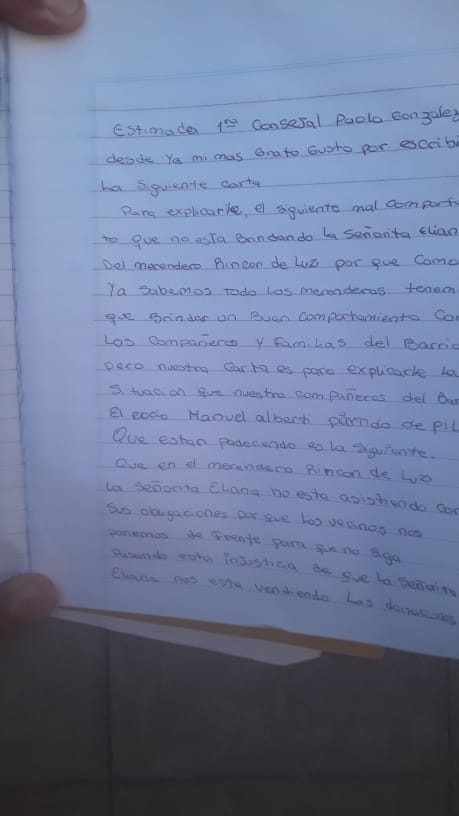 Estimades 1ro Consejal Paolo Gonzalez
desde Ya mi mas Grato Gusto por escribi
La Siguiente carta
Para explicarle, el siguiente mal comporta
to que nos esta Brindando La Señorita Elian
Del merendero Rincon de Luz por que Como
Ya Sabemos todo Los merenderos tenem
que Brindar un Buen Comportamiento Co
Los Compañeros y Familias del Barrio
pero nuestra Carta es para explicarle La
Situacion que nuestro compañeros del Bar
El rocio Manuel alberti partido de PIL
Que estan padeciendo es la siguiente.
Que en el merendero Rincon de Luz
La Señorita Eliana no esta asistiendo con
Sus obligaciones por que Los vecinos nos
ponemos de Frente para que no siga
Pasando esta injusticia de que la Señorita
Eliana nos esta vendiendo Las donaciones